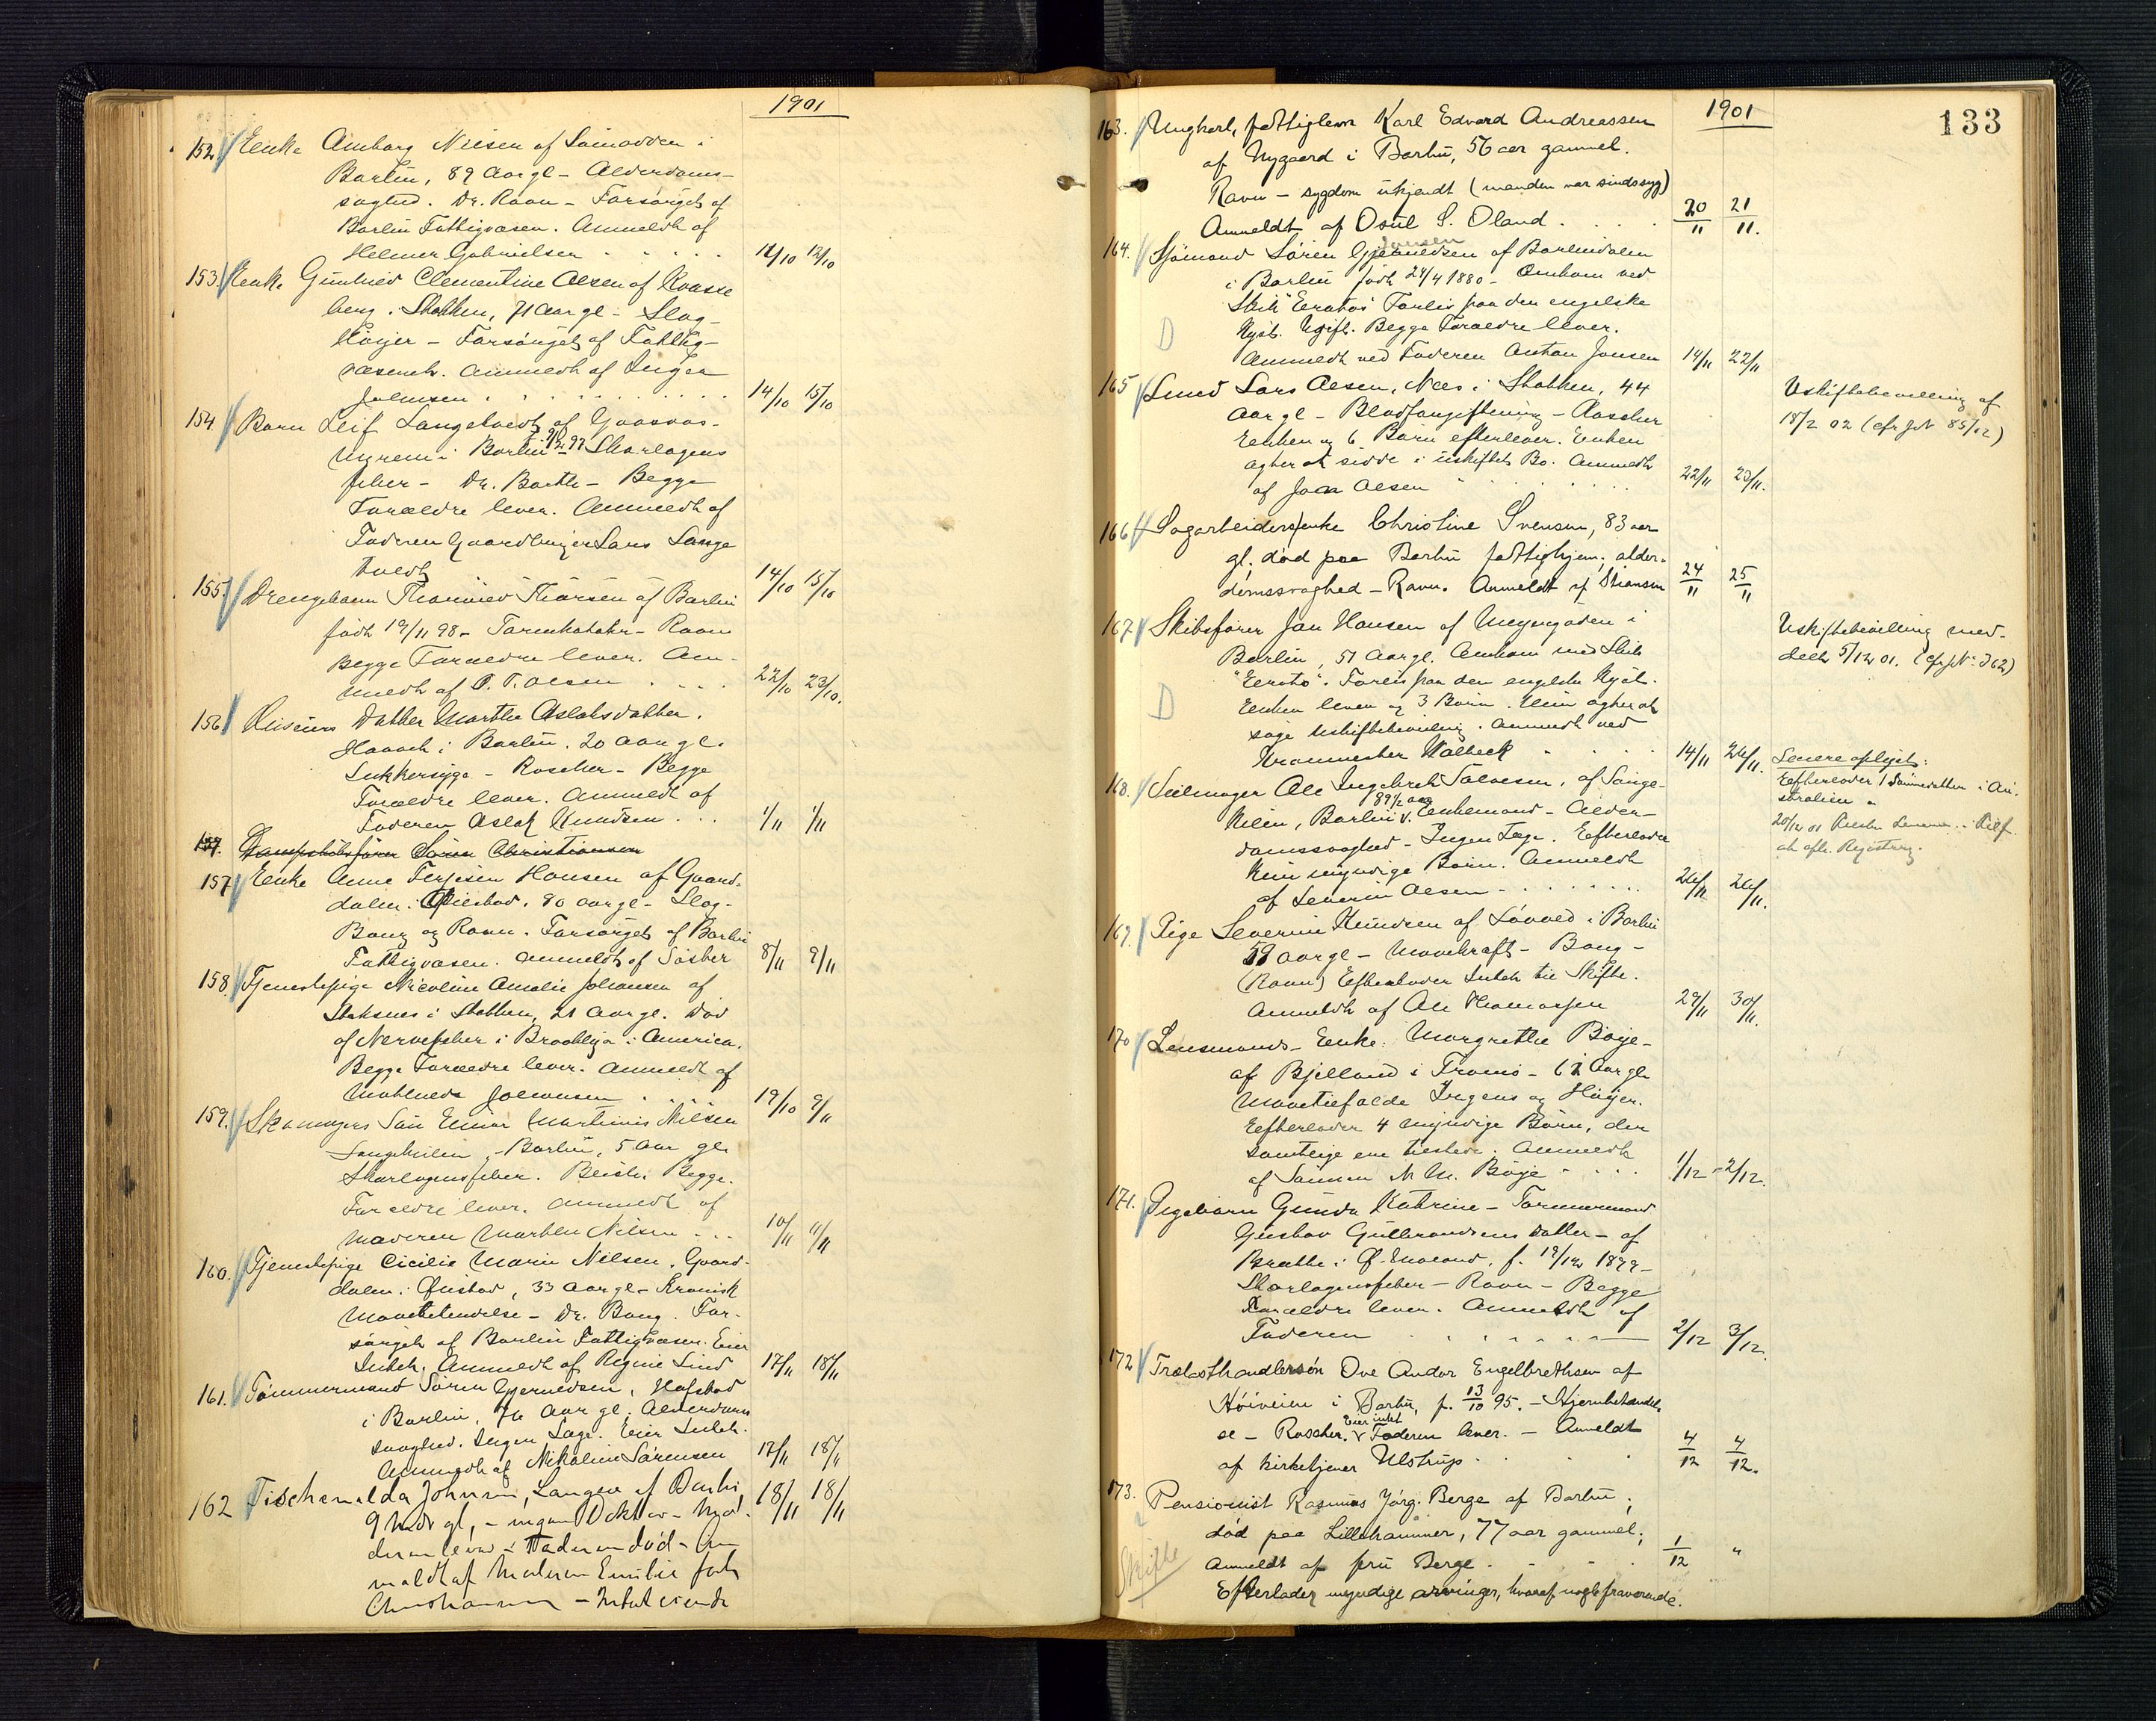 1901
152 Enke Amborg Nilsen af Sømodden i
Barbu, 89 aar gl - Alderdoms-
svaghed. Dr. Ravn - Forsørget af
Barbu Fattigvæsen. Anmeldt af
Helmer Gabrielsen . . . . . 11/10 12/10
153 Enke Gunhild Clementine Olsen af Kvasse
berg i Stokken, 71 aar gl - Slag-
Høyer - Forsørget af Fattig-
væsenet. Anmeldt af Inger
Johnsen . . . . . . . . . 14/10 15/10
154 Barn Leif Langeland af Gaasaas-
myren i Barbu 9/12 97 Skarlagens
feber - Dr. Barth - Begge
Forældre lever. Anmeldt af
Faderen Gaardbruger Lars Lange
tvedt 14/10 15/10
155. Drengebarn af Barbu
født 19/11 98 - Tarmkatahr - Ravn
Begge Forældre lever. An-
meldt af P. T. Olsen . . . . 22/10 23/10.
156 Datter Marthe Aslaksdatter.
i Barbu. 20 aar gl.
Sukkersyge - Roscher - Begge
Forældre lever. Anmeldt af
Faderen Aslak Knudsen . . . 1/11 1/11
157. Dampskibsfører Søren Christiansen
157 Enke Anne Terjesen Hansen af Gaard-
dalen i Øiestad. 80 aar gl - Slag-
Bang og Ravn. Forsørget af Barbu
Fattigvæsen. Anmeldt af Søster 8/11 9/11
158. Tjenestepige Nicoline Amalie Johansen af
Staksnes i Stokken, 21 aar gl. Død
af Nervefeber i Brooklyn i America.
Begge Forældre lever. Anmeldt af
Mathilde Johansen . . . . 19/10 9/11
159. Skomagers Søn Einar Martinius Nilsen
Langekilen - Barbu, 5 aar gl
Skarlagensfeber. Begge
Forældre lever. Anmeldt af
Moderen Marthe Nilsen . . . 10/11 11/11
160. Tjenestepige Cicilie Marie Nilsen. Gaard-
dalen i Øiestad, 33 aar gl - Kronisk
Mavebetendelse - Dr. Bang. For-
sørget af Barbu Fattigvæsen. Eier
Intet. Anmeldt af Regine Lind 17/11 18/11
161. Tømmermand Søren Gjernedsen, Hafstad
i Barbu, 76 aar gl. Alderdoms
svaghed. Ingen Læge. Eier Intet.
Anmeldt af Nikoline Sørensen 17/11 18/11
162 Johnsen, Langsæ af Barbu, 18/11 18/11
9 Mdr gl, - ingen Doktor - Mo-
deren lever - Faderen død - An
meldt af Moderen Emilie født
Christiansen - Intet eiende
1901
133
163. Ungkarl, fattiglem Karl Edvard Andreassen
af Nygaard i Barbu, 56 aar gammel.
Ravn - sygdom ukjendt (manden var sindssyg)
Anmeldt af Osul S. Oland . . . . 20/11 21/11.
164. Sjømand Søren Gjernedsen Jensen af Barbudalen
i Barbu født 24/4 1880 - Omkom ved
Skib "Erato's" Forlis paa den engelske
D
Kyst. Ugift. Begge Forældre lever.
Anmeldt ved Faderen Anton Jensen 14/11 22/11
165 Smed Lars Olsen, Næs i Stokken, 44
aar gl - Blodforgiftning - Roscher
Enken og 6 Børn efterlever. Enken
agter at sidde i uskiftet Bo. Anmeldt
af Jaa Olsen . . . . . . 22/11 23/11.
Uskiftebevilling af
18/2 02 (cfr JN 85/02)
166 Sagarbeidersenke Christine Svensen, 83 aar
gl. død paa Barbu fattighjem; alder-
domssvaghed - Ravn. Anmeldt af Stiansen 24/11 25/11
167. Skibsfører Jan Hansen af Meyergaden i
Barbu, 51 aar gl. Omkom med Skib
"Erato". Forlis paa den engelske Kyst.
D
Enken lever og 3 Børn. Hun agter at
søge Uskiftebevilling. Anmeldt ved
Kranmester Walbeck . . . . 14/11 26/11.
Uskiftebevilling med-
delt 5/12 01. (cfr JN: 362)
168. Seilmager Ole Ingebret Salvesen, af Lange-
kilen, Barbu 89 1/2 aar Enkemand - Alder-
domssvaghed - Ingen Læge. Efterlader
kun myndige Børn. Anmeldt
af Severin Olsen . . . . . . . 26/11 26/11.
Senere oplyst:
Efterlader 1 Sønnedatter i Au-
stralien.
169. Pige Severine Knudsen af Løvved i Barbu
59 aar gl - Mavekræft - Bang -
(Ravn) Efterlader Intet til Skifte.
Anmeldt af Ole Thomassen 29/11 30/11.
170 Lensmands - Enke: Margrethe Bøje -
af Bjelland i Tromø - 61 aar gl
Mavetilfælde Irgens og Høyer.
Efterlader 4 myndige Børn, der
samtlige ere tilstede. Anmeldt
af Sønnen N. M. Bøje . . . . 1/12 - 2/12.
171. Pigebarn Gunda Kathrine - Tømmermand
Gustav Gulbrandsens Datter - af
Bratte i Ø. Moland. f. 19/12 1899 -
Skarlagensfeber - Ravn - Begge
Forældre lever. Anmeldt af
Faderen . . . . . . 2/12 3/12.
172 Trælasthandlersøn Ove Andor Engelbrethsen af
Høiveien i Barbu, f. 13/10 95. - Hjernebetændel-
se - Roscher. Eier intet Faderen lever. - Anmeldt
af kirketjener Ulstrup . . . . 4/12 4/12.
173. Pensionist Rasmus Jørg. Berge af Barbu;
død paa Lillehammer, 77 aar gammel;
Skifte
Anmeldt af fru Berge . . . . . 1/12 "
Efterlader myndige arvinger, hvoraf nogle fraværende.